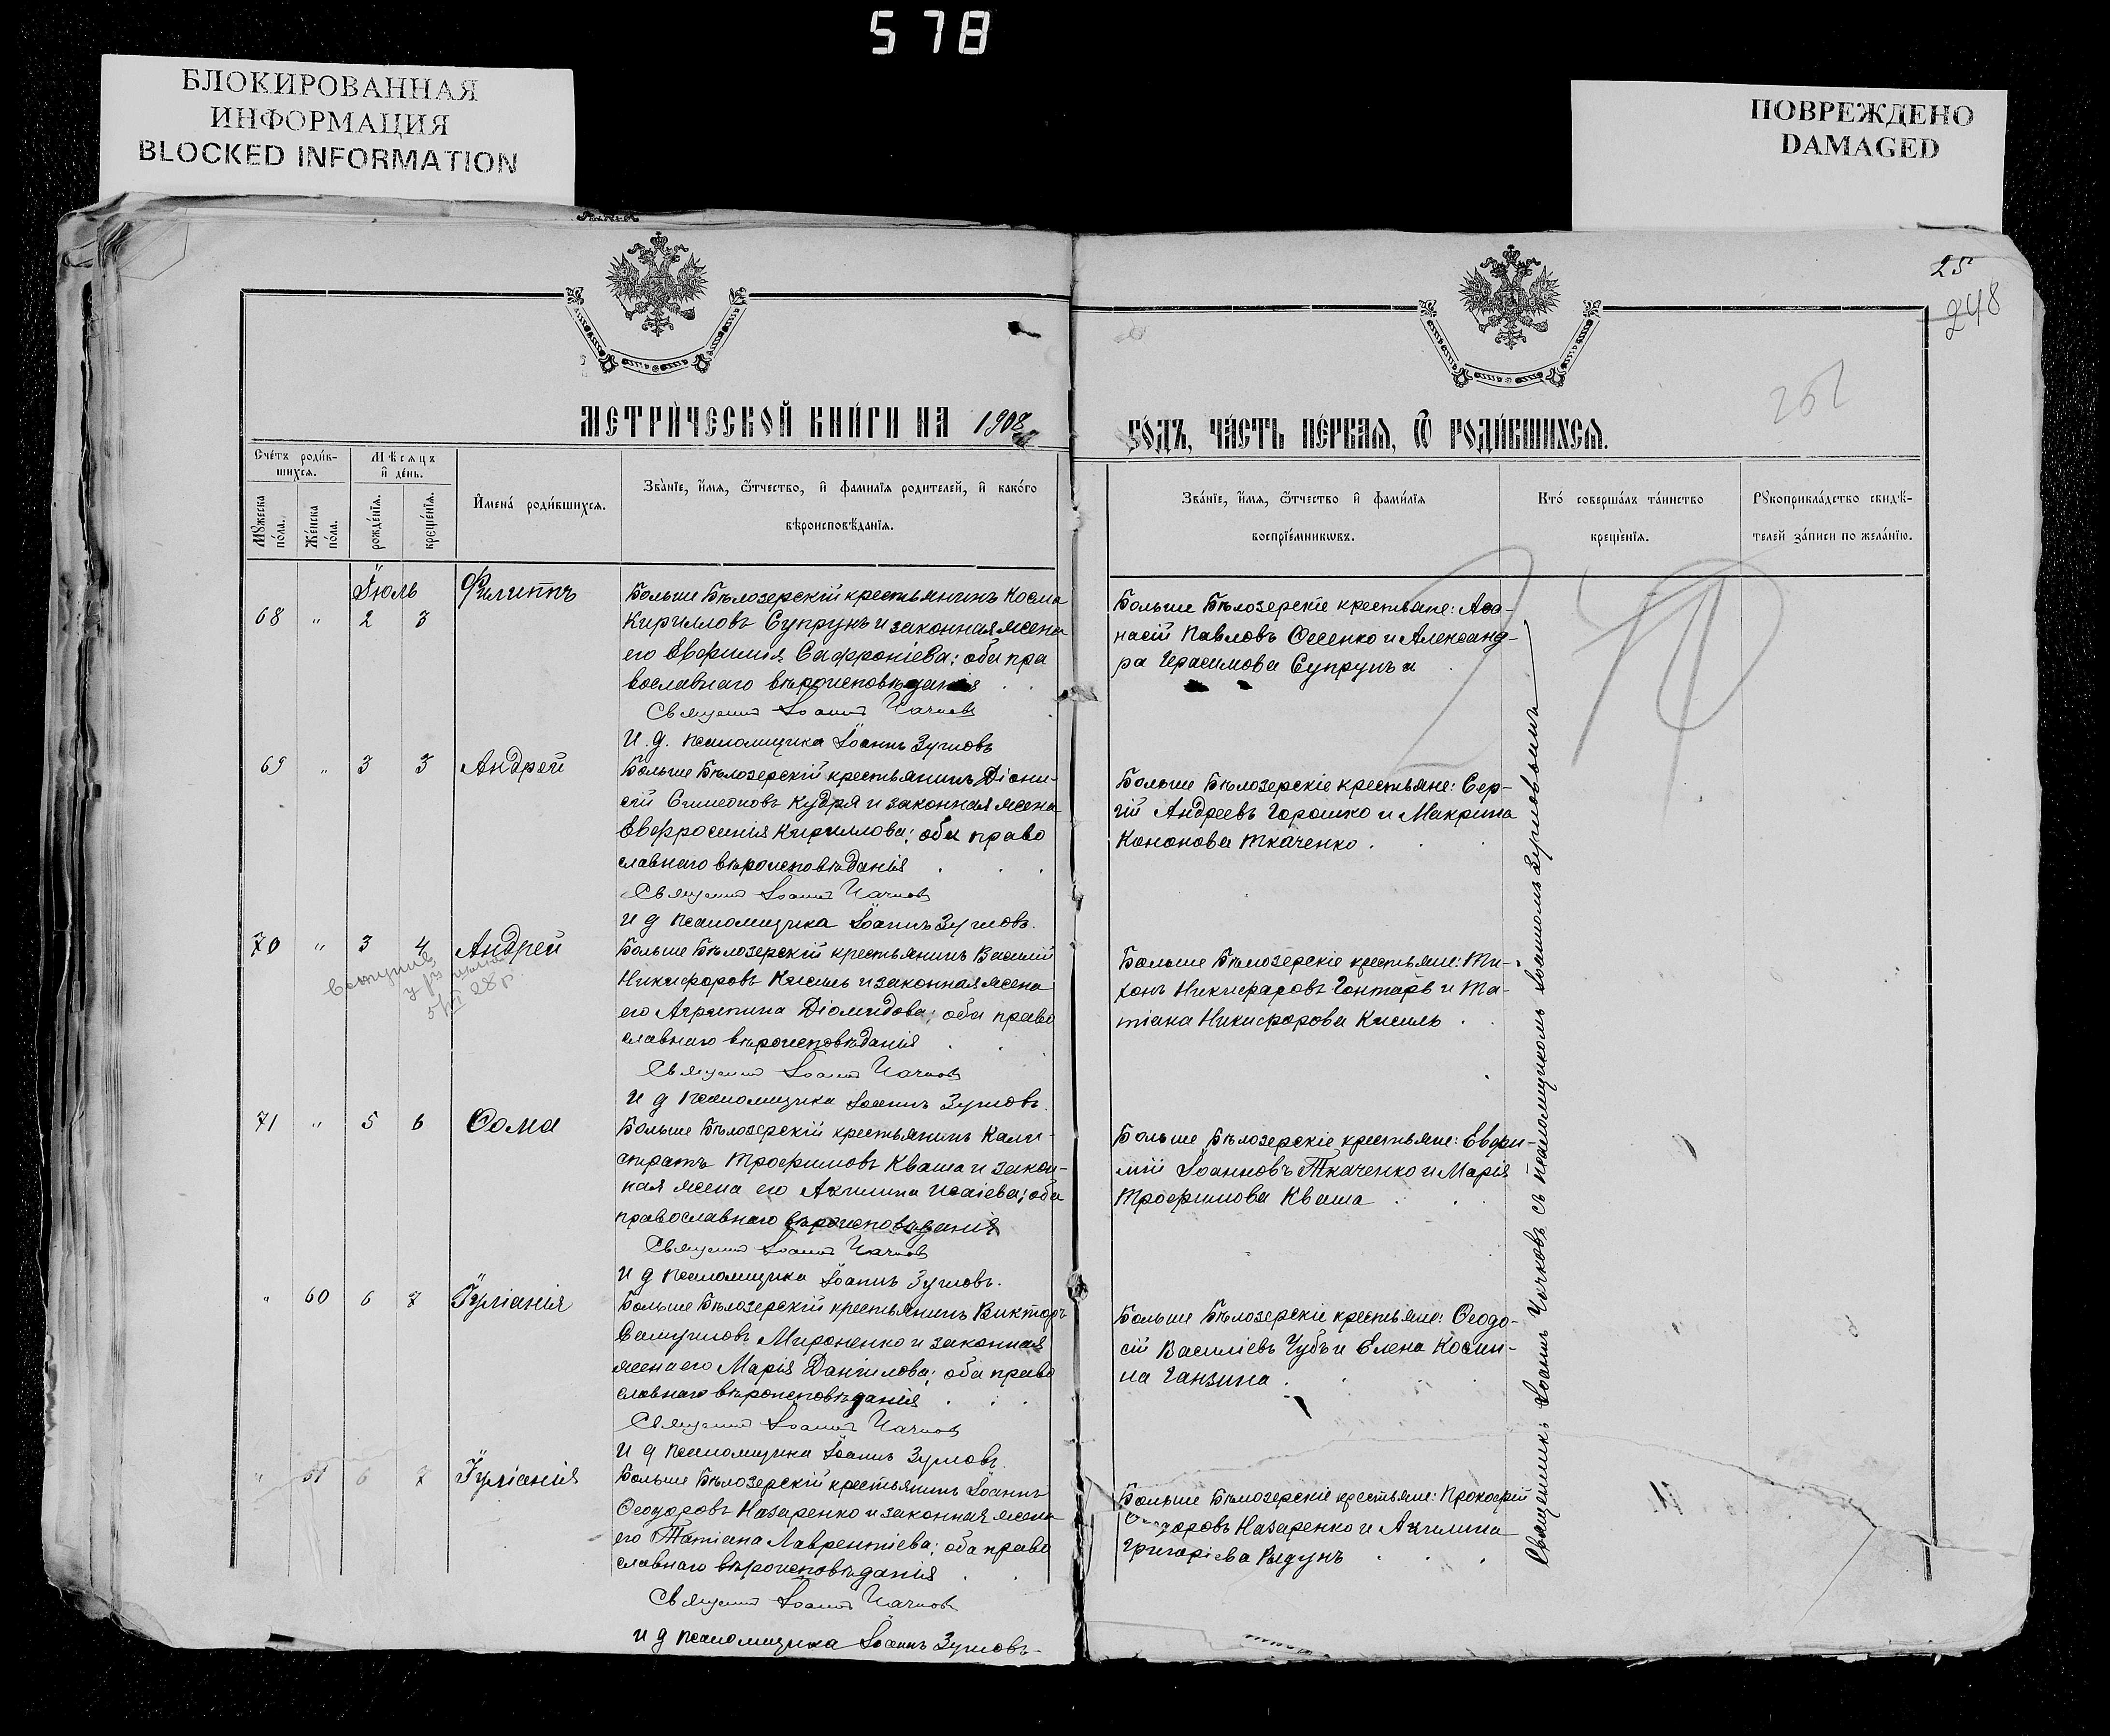 578
БЛОКИРОВАННАЯ
ИНФОРМАЦИЯ
BLOCKED INFORMATION
ПОВРЕЖДЕНО
DAMAGED
25
248
МЕТРИ́ЧЕСКОЙ КНИ́ГИ НА 1908
ГО́ДЪ, ЧА́СТЬ ПЕ́РВАѦ, Ѿ РОДИ́ВШИХСѦ.
Сче́тъ роди́в-
шихсѧ.
Мѣсѧцъ
и҆ де́нь.
Мꙋжеска
по́ла.
Же́нска
по́ла.
рожде́нїѧ.
креще́нїѧ.
И҆мена́ роди́вшихсѧ.
Зва́нїе, и҆́мѧ, ѻ҆́тчество, и҆ фами́лїѧ родителей, и҆ како́гѡ
вѣроисповѣ́данїѧ.
Зва́нїе, и҆́мѧ, ѻ҆́тчество и҆ фами́лїѧ
воспрїе́мникѡвъ.
Кто́ соверша́лъ та́инство
креще́нїѧ.
Рꙋкоприкла́дство свидѣ́-
телей за́писи по жела́нїю.
Іюль
68 " 2 3 Филиппъ
Больше Бѣлозерскій крестьянинъ Косма
Кирилловъ Супрунъ и законная жена
его Евфимія Сафроніева; оба пра
вославнаго вѣроисповѣданія
Священникъ Іоаннъ Чачковъ
И. д. псаломщика Іоаннъ Зуиловъ
Больше Бѣлозерскіе крестьяне: Аѳа-
насій Павловъ Осенко и Александ-
ра Герасимова Супрунъ
69 " 3 3 Андрей
Больше Бѣлозерскій крестьянинъ Діони-
сій Симеоновъ Кудря и законная жена
Евфросинія Кириллова; оба право
славнаго вѣроисповѣданія
Священникъ Іоаннъ Чачковъ
И д псаломщика Іоаннъ Зуиловъ.
Больше Бѣлозерскіе крестьяне: Сер-
гій Андреевъ Горошко и Макрина
Кононова Ткаченко.
70 " 3 4 Андрей
28 р.
Больше Бѣлозерскій крестьянинъ Василій
Никифоровъ Кисиль и законная жена
его Агрипина Діомидова; оба право
славнаго вѣроисповѣданія
Священникъ Іоаннъ Чачковъ
И д псаломщика Іоаннъ Зуиловъ.
Больше Бѣлозерскіе крестьяне: Ти-
хонъ Никифоровъ Гонтарь и Та-
тіана Никифорова Кисиль.
71 " 5 6 Ѳома
Больше Бѣлозерскій крестьянинъ Кали-
стратъ Трофимовъ Кваша и закон-
ная жена его Акилина Исаіева; оба
православнаго вѣроисповѣданія
Священникъ Іоаннъ Чачковъ
И д псаломщика Іоаннъ Зуиловъ.
Больше Бѣлозерскіе крестьяне: Евфи-
мій Іоанновъ Ткаченко и Марія
Трофимова Кваша
" 60 6 7 Іуліанія
Больше Бѣлозерскій крестьянинъ Викторъ
Самуиловъ Мироненко и законная
жена его Марія Даніилова; оба право
славнаго вѣроисповѣданія
Священникъ Іоаннъ Чачковъ
И д псаломщика Іоаннъ Зуиловъ.
Больше Бѣлозерскіе крестьяне: Ѳеодо-
сій Василіевъ Чубъ и Елена Косми-
на Ганзина.
" 61 6 7 Іуліанія
Больше Бѣлозерскій крестьянинъ Іоаннъ
Ѳеодоровъ Назаренко и законная жена
его Татіана Лаврентіева; оба право
славнаго вѣроисповѣданія
Священникъ Іоаннъ Чачковъ
И д псаломщика Іоаннъ Зуиловъ.
Больше Бѣлозерскіе крестьяне: Прокофій
Ѳеодоровъ Назаренко и Акилина
Григоріева Рядунъ
Священникъ Іоаннъ Чачковъ съ псаломщикомъ Іоанномъ Зуиловымъ